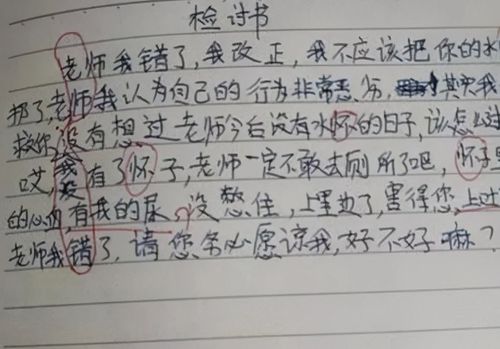 检讨书
老师我错了,我改正,我不应该把你的水
了,老师我认为自己的行为非常恶劣,其实我
你,没有想过老师今后没有水怀的日子,该怎么过
哎,我没有了怀子,老师一定不敢去厕所了吧,怀子里
的心血,有我的尿,没憋住,上里边了,害得您,上吐
老师我错了,请您务必愿谅我,好不好嘛?